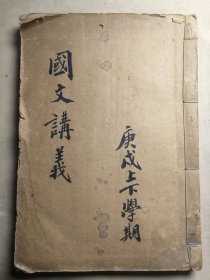 國文講義
庚戌上下學期